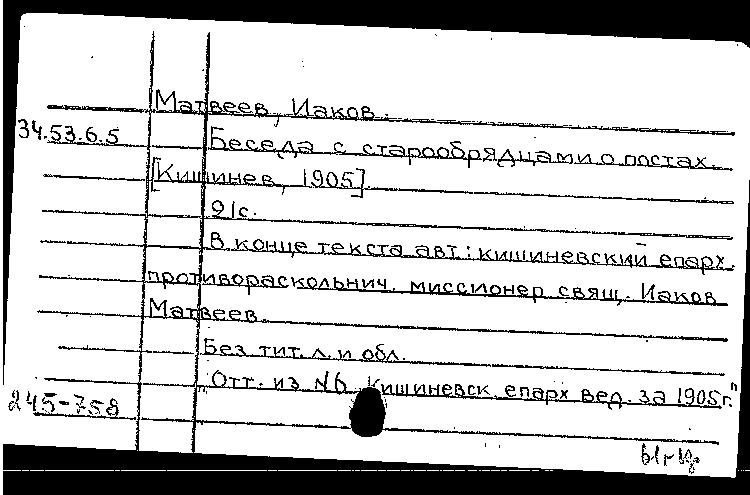 Матвеев, Иаков.
34.53.6.5 Беседа с старообрядцами о постах.
[Кишинев, 1905].
21с.
В конце текста авт.: кишиневский епарх.
противораскольнич. миссионер свящ. Иаков
Матвеев.
Без тит. л. и обл.
"Отт. из №6 Кишиневск. епарх. вед. за 1905г."
245-758